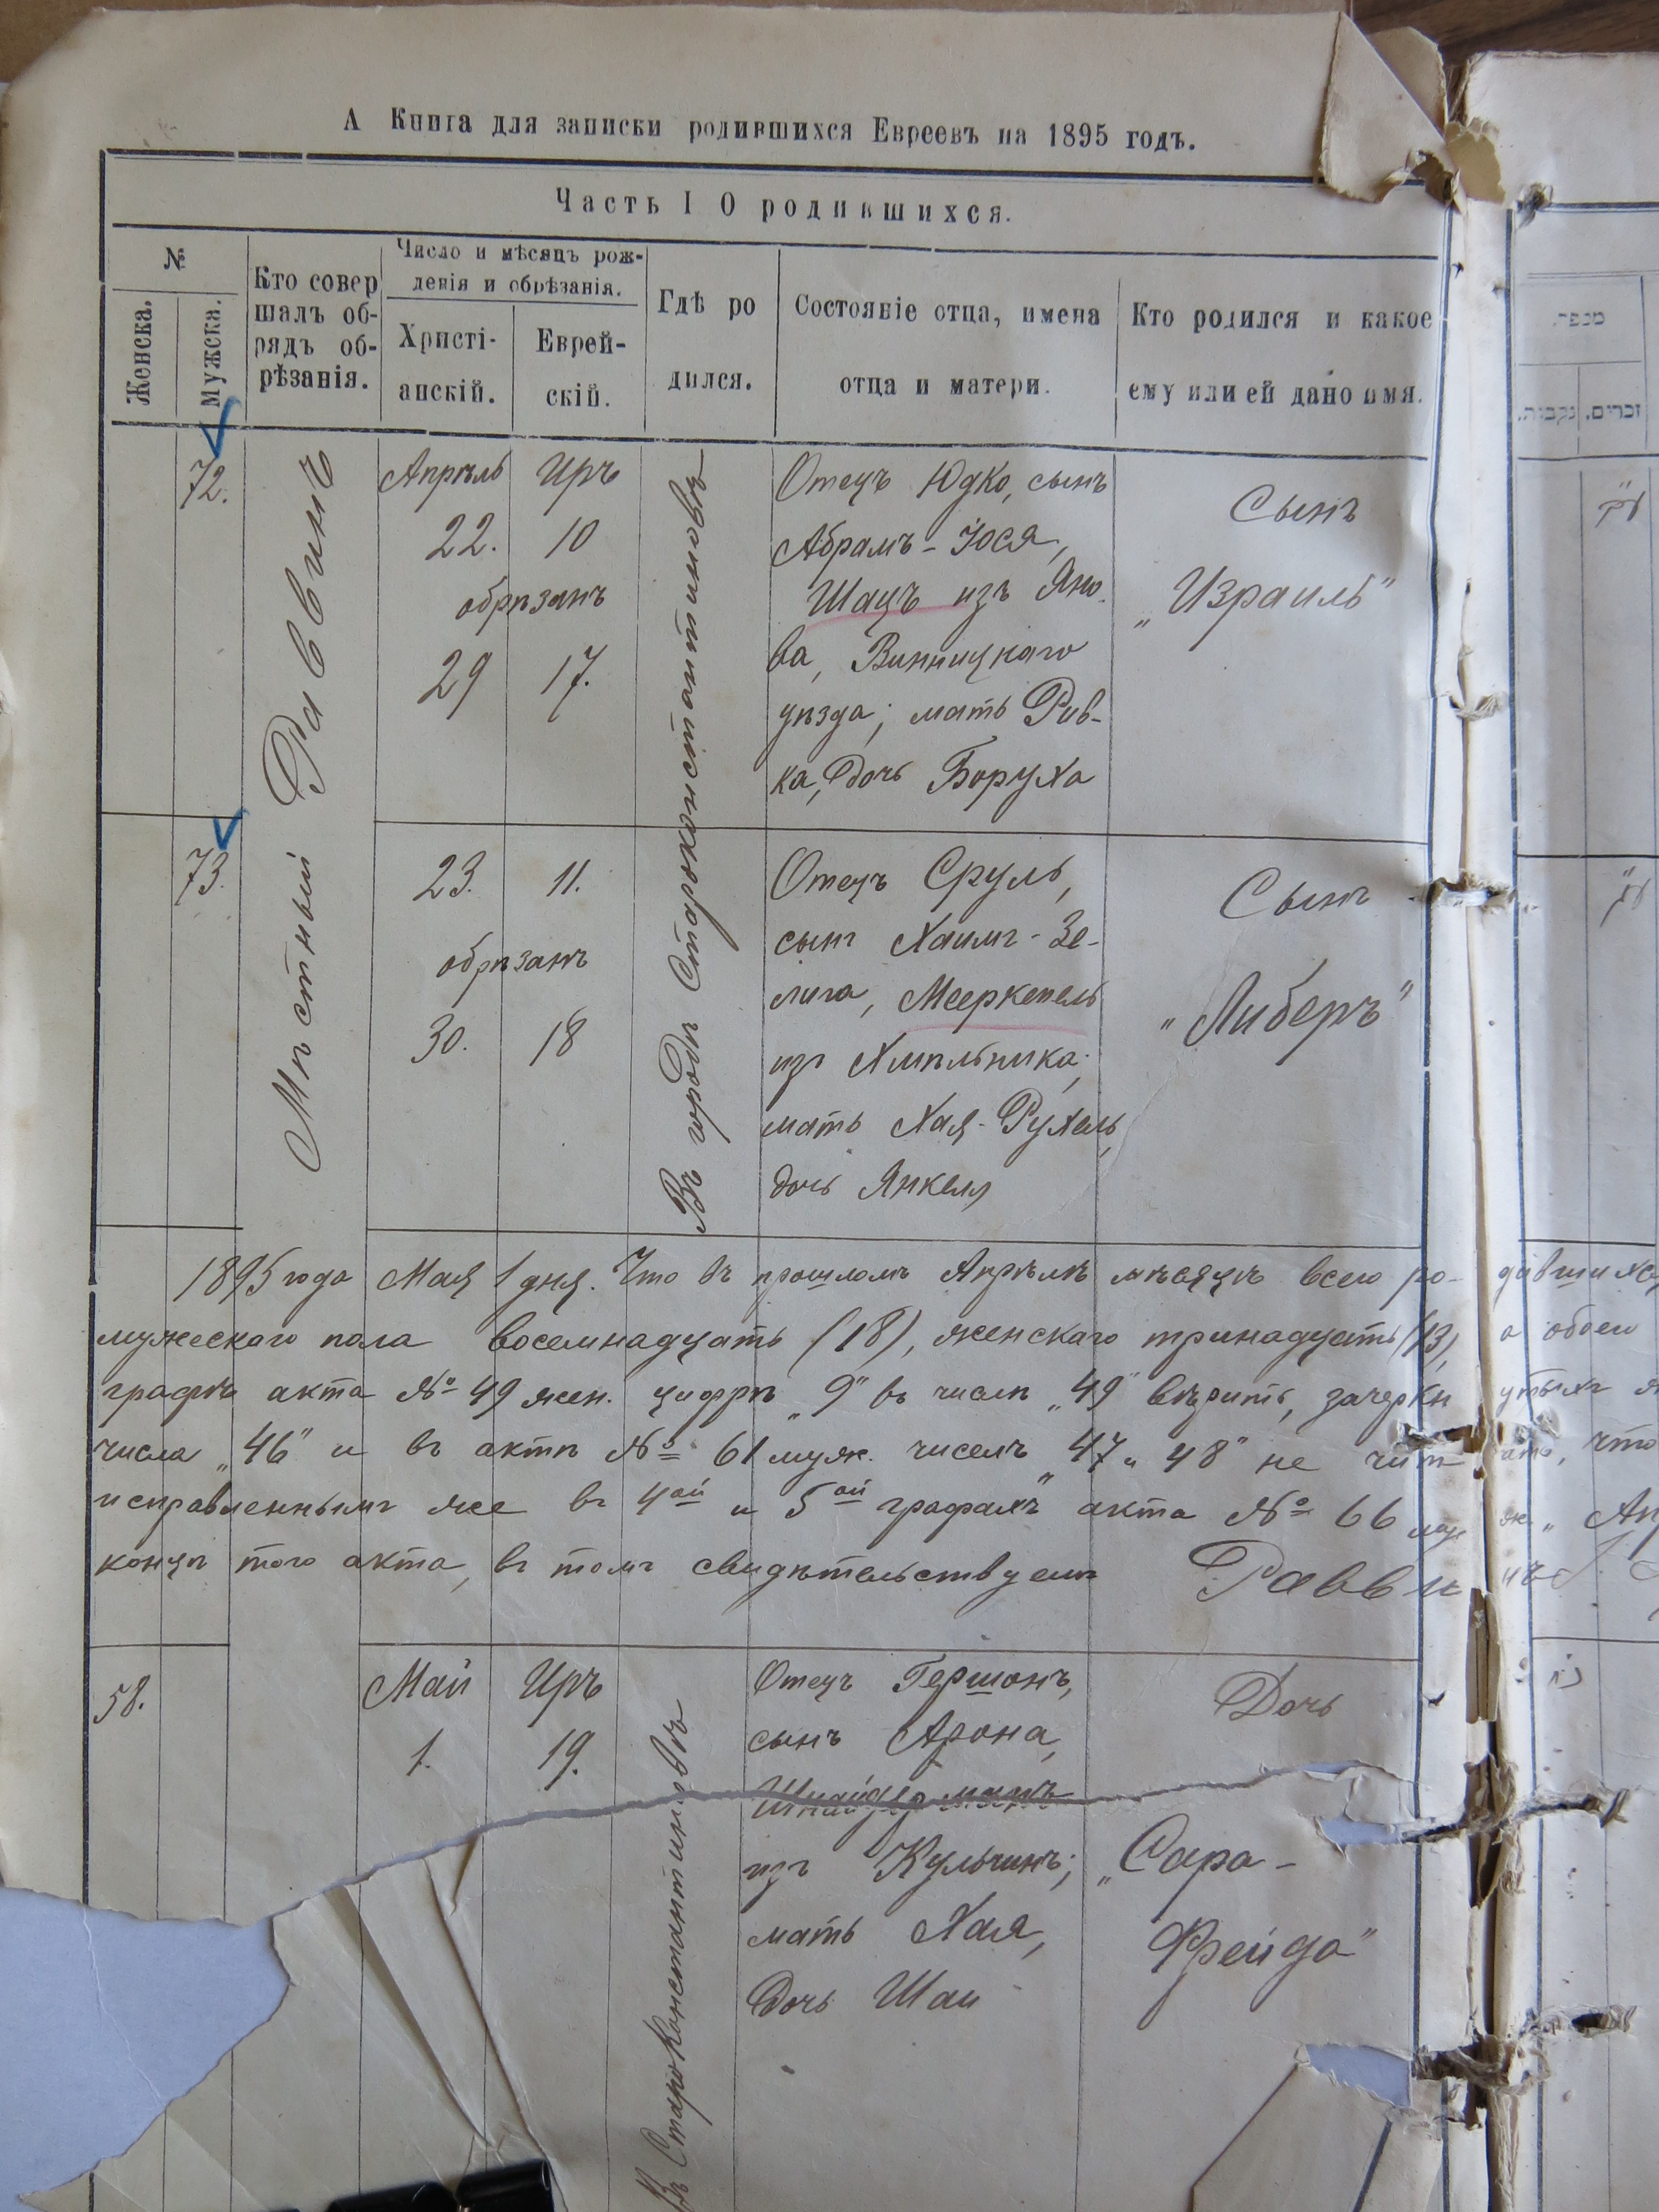 А Книга для записки родившихся Евреевъ на 1895 годъ.
Часть I О родившихся.
№
Женска.
Мужска.
Кто совер
шалъ об-
рядъ об-
рѣзанія.
Число и мѣсяцъ рож-
денія и обрѣзанія.
Христі-
анскій.
Еврей-
скій.
Гдѣ ро
дился.
Состояніе отца, имена
отца и матери.
Кто родился и какое
ему или ей дано имя.
מספר
זכרים.
נקבות.
Мѣстный Раввинъ
Въ городѣ Староконстантиновѣ
72.
Апрѣль Иръ
22. 10
обрѣзанъ
29 17.
Отецъ Юдко, сынъ
Абрамъ-Іося,
Шацъ изъ Яно-
ва, Винницкаго
уѣзда; мать Рив-
ка, дочь Боруха
Сынъ
„Израиль"
73.
23. 11.
обрѣзанъ
30. 18
Отецъ Сруль,
сынъ Хаимъ-Зе-
лига, Мееркепель
изъ Хмѣльника;
мать Хая-Рухель,
дочь Янкеля
Сынъ
„Либеръ"
1895 года Мая 1 дня. Что въ прошломъ Апрѣлѣ мѣсяцѣ всего ро-дившихся
мужескаго пола восемнадцать (18), женскаго тринадцать (13), а обоего
графѣ акта № 49 жен. цифрѣ „9" въ числѣ „49" вѣрить, зачеркнутыхъ
числа „46" и въ актѣ № 61 муж. чиселъ „47 и 48" не читать, что
исправленнымъ же въ 4ой и 5ой графахъ акта № 66 муж. „Ап
концѣ того акта, въ томъ свидѣтельствуемъ Раввинъ
58.
Май Иръ
1. 19.
Въ Староконстантиновѣ
Отецъ Гершонъ,
сынъ Арона,
Шнайдерманъ
изъ Кульчинъ;
мать Хая,
дочь Шаи
Дочь
„Сара-
Фрейда"